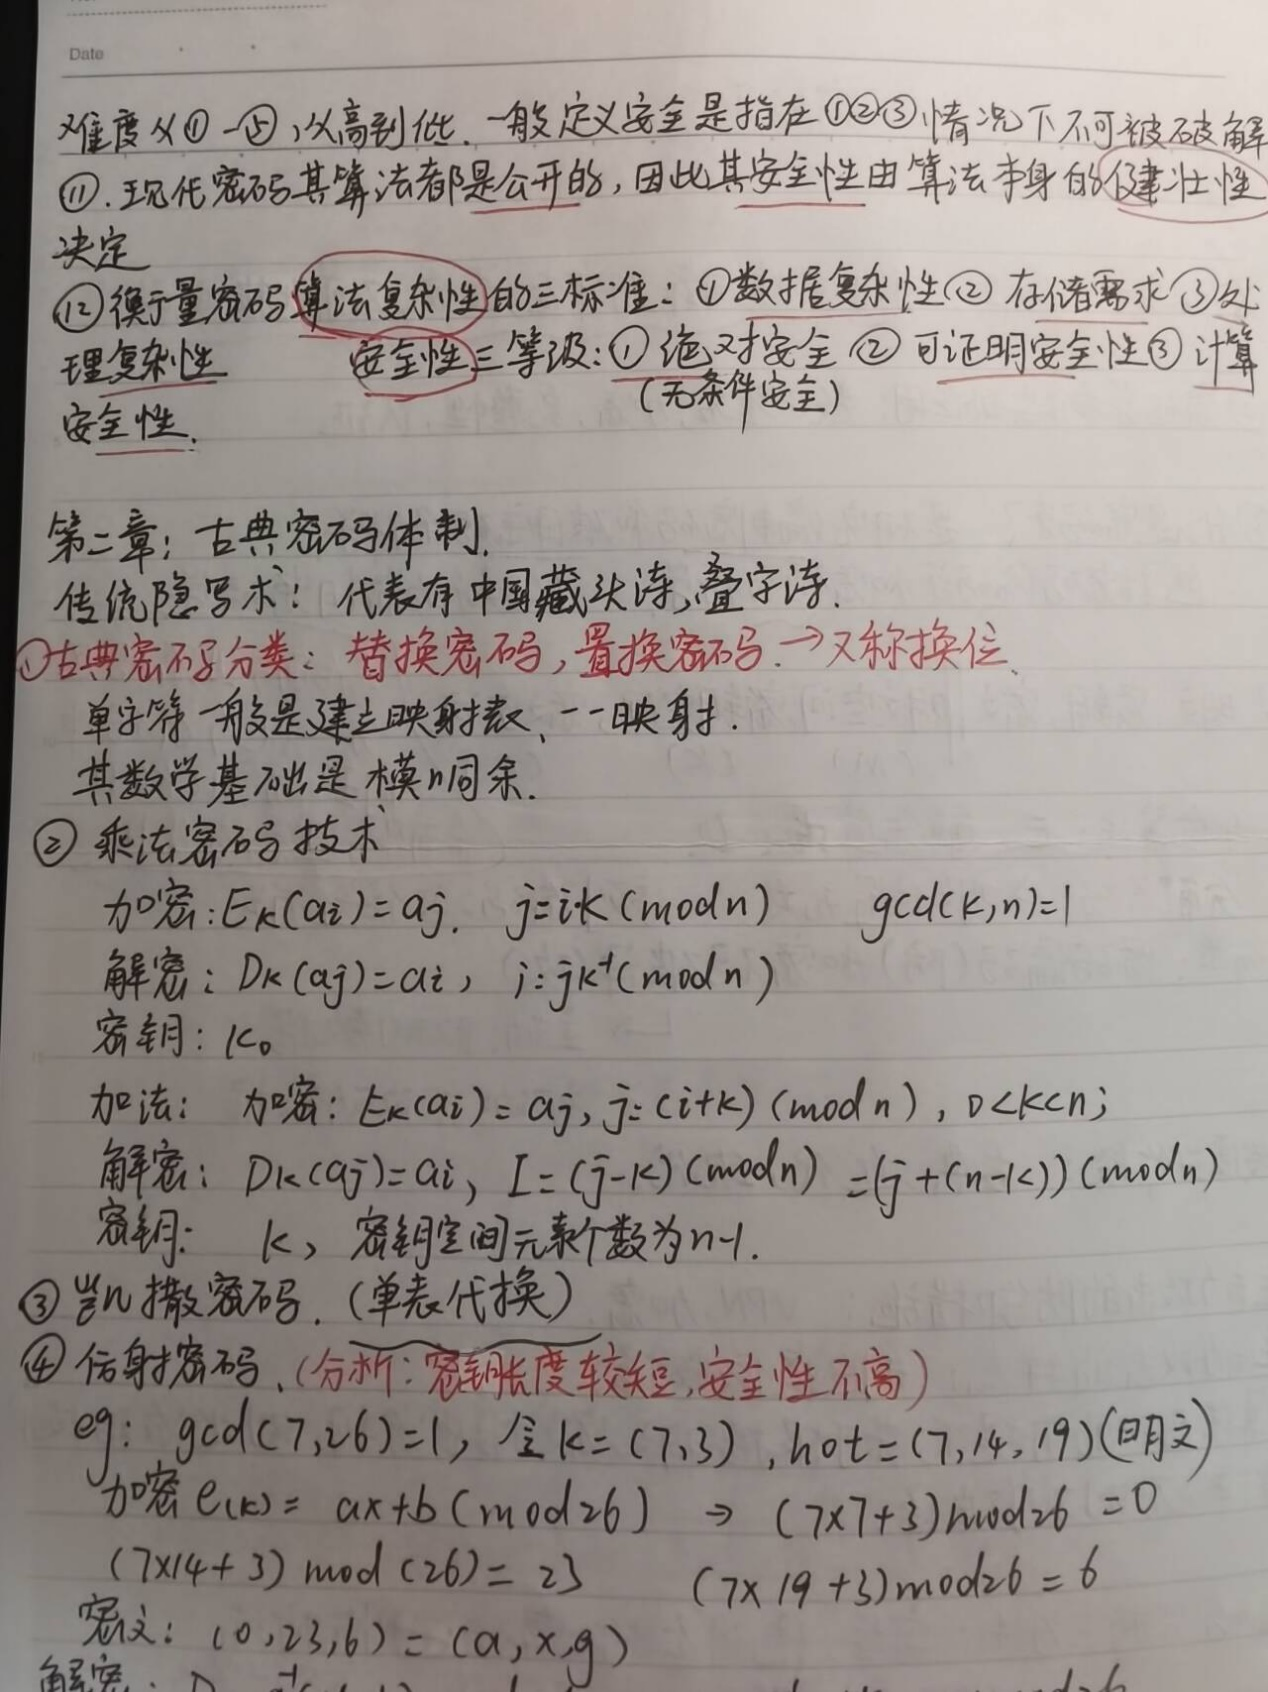 Date
难度从①-⑤,从高到低. 一般定义安全是指在①②③情况下不可被破解
⑪.现代密码其算法都是公开的,因此其安全性由算法本身的健壮性
决定
⑫衡量密码算法复杂性的三标准:①数据复杂性②存储需求③处
理复杂性 安全性三等级:①绝对安全②可证明安全性③计算
(无条件安全)
安全性.
第二章:古典密码体制.
传统隐写术:代表有中国藏头诗,叠字诗.
①古典密码分类:替换密码,置换密码.→又称换位.
单字符一般是建立映射表、一一映射.
其数学基础是模n同余.
② 乘法密码技术
加密:Eₖ(ai)=aj. j=i·k(mod n) gcd(k,n)=1
解密:Dₖ(aj)=ai, j=jk⁻¹(mod n)
密钥:k。
加法: 加密:Eₖ(ai)=aj, j=(i+k)(mod n), 0<k<n;
解密:Dₖ(aj)=ai, I=(j-k)(mod n) =(j+(n-k))(mod n)
密钥: k, 密钥空间元素个数为n-1.
③ 岂n撒密码.(单表代换)
④ 仿射密码.(分析:密钥长度较短,安全性不高)
eg: gcd(7,26)=1, 令k=(7,3), hot=(7,14,19)(明文)
加密e(k)= ax+b(mod26) → (7×7+3)mod26=0
(7×14+3) mod (26)= 23 (7×19+3)mod26=6
密文:(0,23,6)=(a,x,g)
解密: